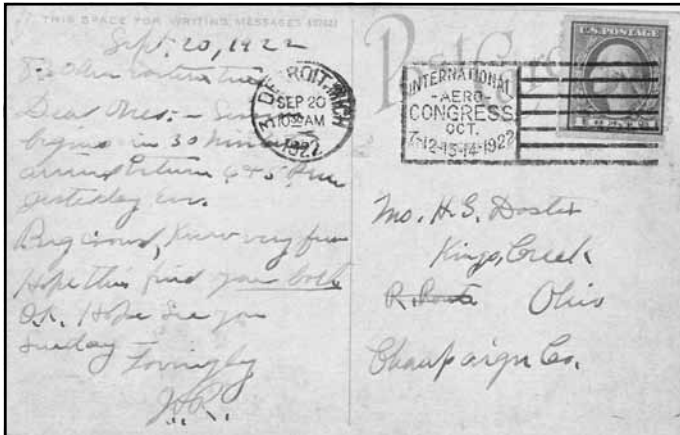 THIS SPACE FOR WRITING MESSAGES
Sept. 20, 1922
Dear Ones: -
begins in 30 minutes
yesterday eve.
Big crowd, know very few
Hope this find you both
O.K. Hope see you
Sunday
Lovingly
Post Card
DETROIT, MICH.
SEP 20
10 30 AM
1922
INTERNATIONAL
-AERO-
CONGRESS
OCT.
7-12-13-14-1922
U.S. POSTAGE
H. S. Doster
Kings Creek
R. Route Ohio
Champaign Co.